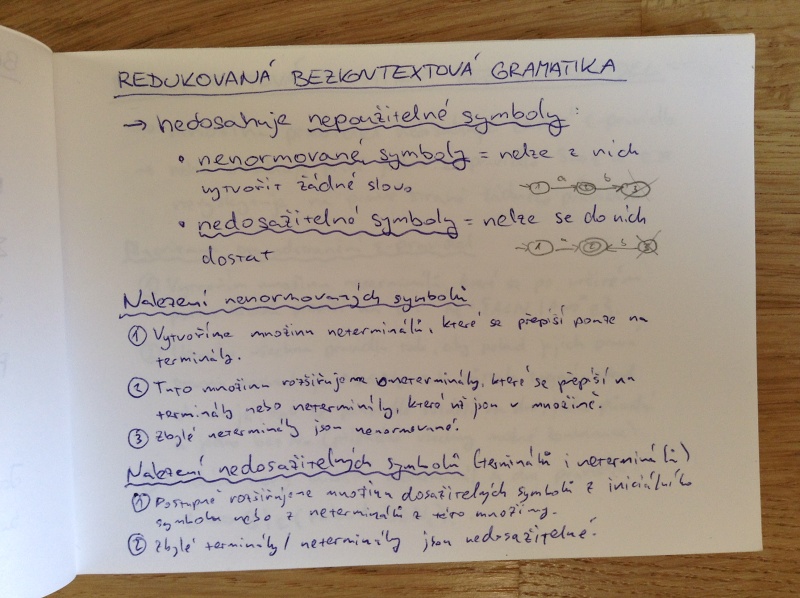 REDUKOVANÁ BEZKONTEXTOVÁ GRAMATIKA
→ nedosahuje nepoužitelné symboly:
• nenormované symboly = nelze z nich
vytvořit žádné slovo
1 a 2 b 3
• nedosažitelné symboly = nelze se do nich
dostat
1 a 2 b 3
Nalezení nenormovaných symbolů
① Vytvoříme množinu neterminálů, které se přepíší pouze na
terminály.
② Tuto množinu rozšiřujeme o neterminály, které se přepíší na
terminály nebo neterminály, které už jsou v množině.
③ Zbylé neterminály jsou nenormované.
Nalezení nedosažitelných symbolů (terminálů i neterminálů)
① Postupně rozšiřujeme množinu dosažitelných symbolů z iniciálního
symbolu nebo z neterminálů z této množiny.
② Zbylé terminály/neterminály jsou nedosažitelné.